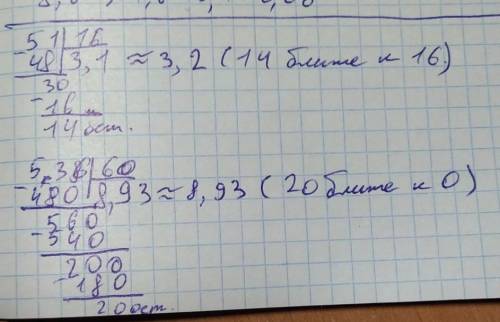 -51 | 16
48 | 3,1 ≈ 3,2 (14 ближе к 16)
30
-16
14 ост.
5,36 | 60
-480 | 8,93 ≈ 8,93 (20 ближе к 0)
560
-540
200
-180
20 ост.